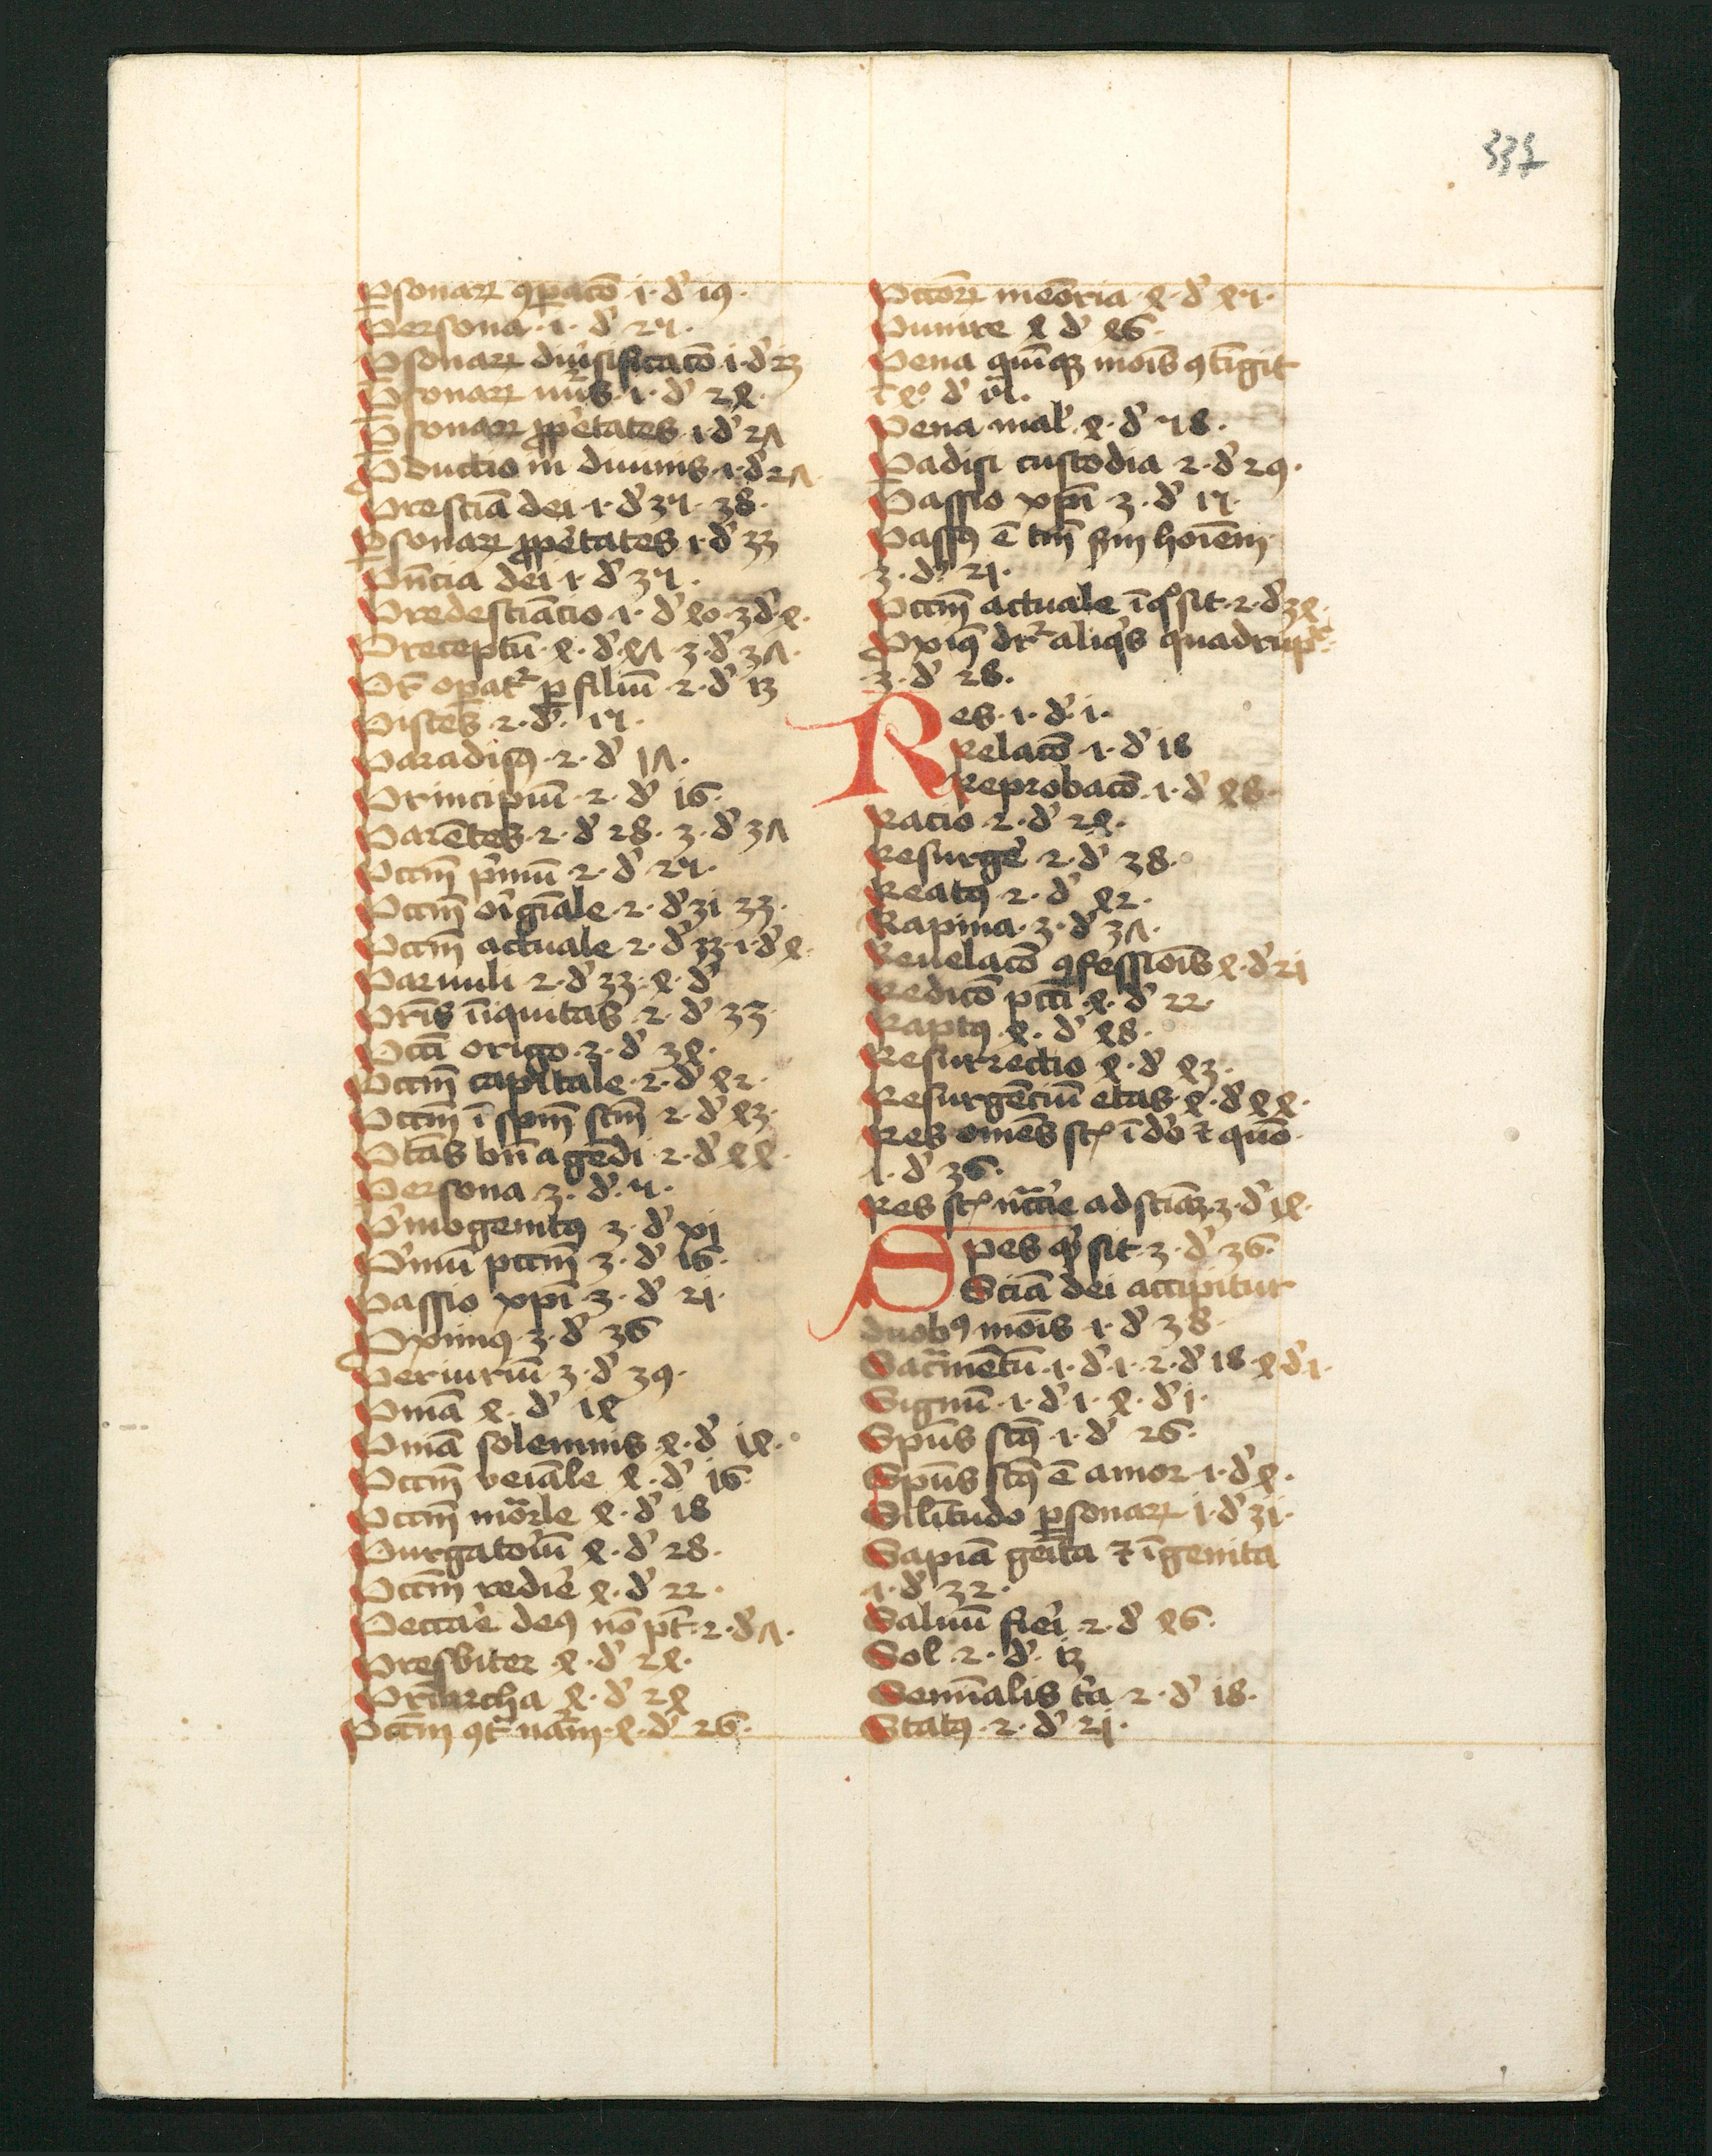 331
ꝑsonaꝝ ꝯꝑac̄o ·1· d' 19·
Persona ·1· d' 25·
ꝑsonaꝝ diu'sificac̄o 1· d' 23
ꝑsonaꝝ nu͛s ·1· d' 24·
ꝑsonaꝝ ꝓp'etates ·1· d' 27
ꝓductio in diuinis ·1· d' 27·
Presciā dei ·1· d' 35· 38·
ꝑsonaꝝ ꝓp'etates 1· d' 33
Pn̄cia dei 1· d' 35·
Predestiācio ·1· d' 40· 3 d' 4·
Preceptū ·4· d' 47 3· d' 37·
Pr̄ oꝑat᷑ ꝑ filiū ·2· d' 13
Pisces 2· d'· 15·
Paradisꝰ ·2· d' 17·
Principiū ·2· d' 16·
Parētes ·2· d' 28· 3· d' 37
Pcc̄m p'mū 2· d' 25·
Pcc̄m or'gīale ·2· d' 31 33·
Pcc̄m actuale 2· d' 33· 1· d' 4·
Paruuli 2· d' 33· 4· d'
Pr̄is īiquitas ·2· d' 33·
Pcc̄i origo ·2· d' 34·
Pcc̄m capitale ·2· d' 42·
Pcc̄m ī spm̄ scm̄ 2· d' 43·
Ptās bn̄ agēdi ·2· d' 44·
Persona 3· d'· 5·
P'mogenitꝰ 3· d' xi
P'mū pccm̄ 3· d' 16·
Passio xpī ·3· d' 21·
Pximꝰ ·3· d' 36
Periuriū ·3· d' 39·
Pniā 4· d' 14
Pniā solemnis 4· d' 14·
Pcc̄m veiāle 4· d' 16·
Pcc̄m mor̄le 4· d' 18
Purgatoiū 4· d' 28·
Pcc̄m redir'e 4· d' 22·
Peccar'e deꝰ nō pt̄ ·2· d' 7·
Presbiter ·4· d' 24·
Pr̄iarcha 4· d' 24
Pcc̄m ꝯt᷑ nām ·4· d' 26·
Pcc̄oꝝ meōria ·4· d' 45·
Punire 4 d' 46·
Pena quīqꝫ mois ꝯtīgit
Pena mal' ·4· d' 58·
ꝑadisi custodia 2· d' 29·
Passio xpī ·3· d' 15·
Passꝰ ē tm̄ sm̄ hoīem
3· d'· 21·
Pcc̄m actuale ī qͦ sit ·2· d' 34·
Pxiꝰ dr᷑ aliqͥs quadrup͛
3· d' 28·
Res ·1· d'· 1·
Relac̄o ·1· d' 18
Reprobac̄o ·1· d' 48·
Racio ·2· d' 24·
Resurge' 2· d' 38·
Reatꝰ 2· d' 42·
Rapina ·3· d' 37·
Reuelac̄o ꝯfessiōis 4· d' 21
Redic̄o pcc̄i ·4· d' 22·
Raptꝰ 4· d' 48·
Resurrectio 4· d' 43·
Resurgēciū etas ·4· d' 44·
Res omēs st᷑ ī do' ⁊ quō
1· d' 36·
Spes qͥd sit ·3· d' 36·
Sciā dei accipitur
duobꝰ moīs 1· d' 38·
Sac̄mētū ·1· d' 1· 2· d' 18 4 d' 1·
Signū ·1· d' 1· 4· d' 1·
Spūs scꝰ ·1· d' 26·
Spūs scꝰ ē amor ·1· d' 4·
Silītudo ꝑsonaꝝ 1· d' 31·
Sapiā geīta ⁊ īgenita
1· d' 32·
Saluū fiei 2· d' 46·
Sol ·2· d'· 13
Semīalis t'a 2· d' 18·
Statꝰ ·2· d' 21·